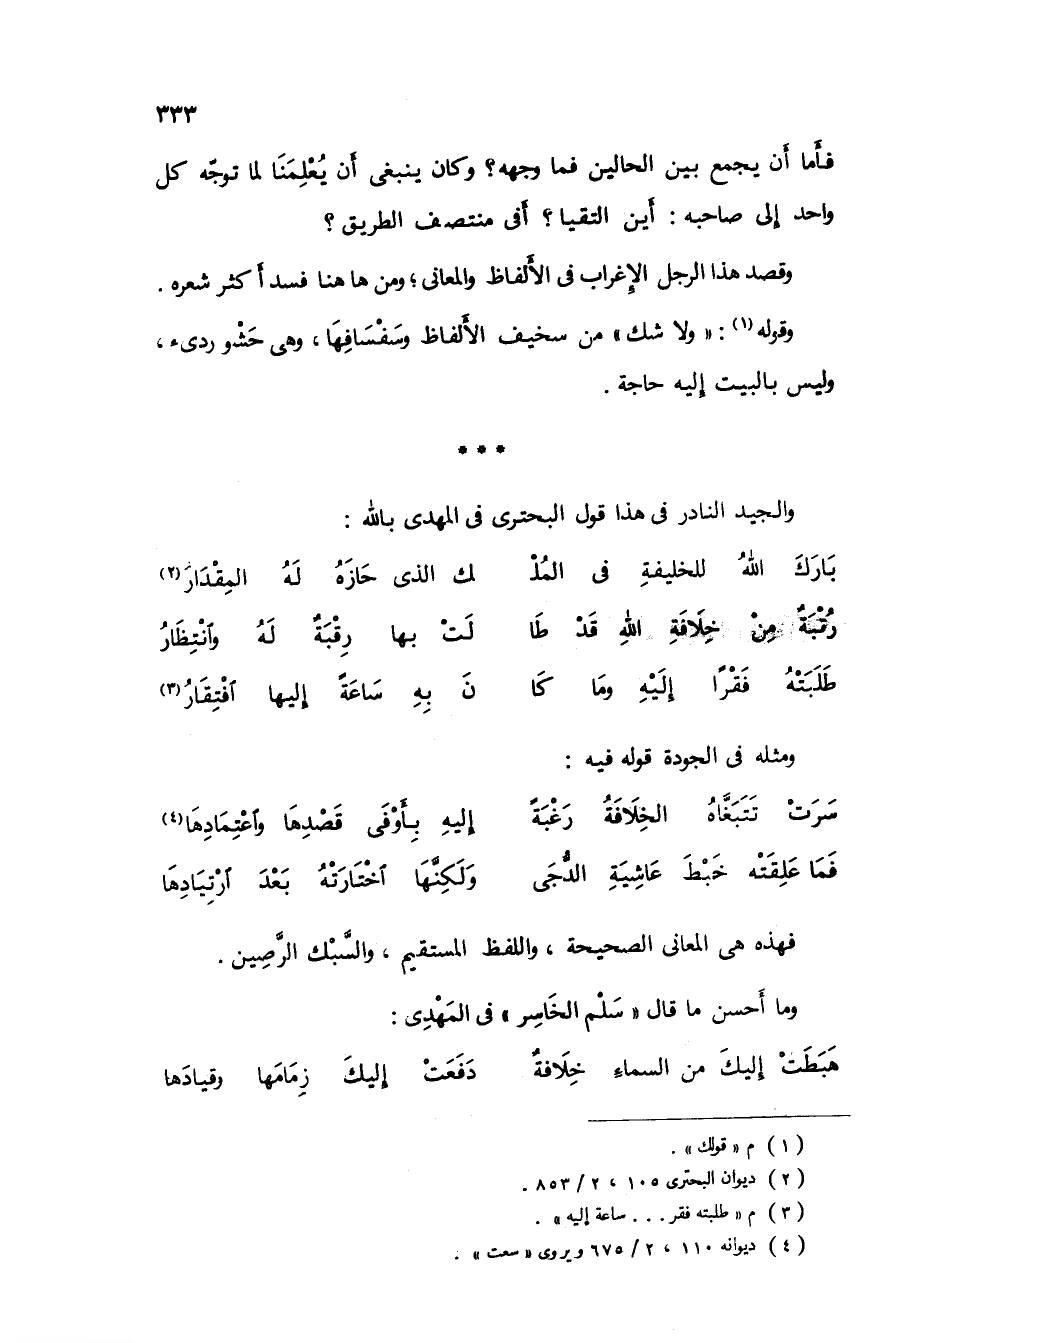 ٣٣٣
فأَما أَن يجمع بين الحالين فما وجهه؟ وكان ينبغى أَن يُعْلِمَنَا لما توجّه كل
واحد إِلى صاحبه : أَين التقيا ؟ أَفى منتصف الطريق ؟
وقصد هذا الرجل الإِغراب فى الأَلفاظ والمعانى ؛ ومن ها هنا فسد أَكثر شعره .
وقوله (١) : « ولا شك » من سخيف الأَلفاظ وسَفْسَافِهَا ، وهى حَشْو ردىء ،
وليس بالبيت إِليه حاجة .
* * *
والجيد النادر فى هذا قول البحترى فى المهدى بالله :
بَارَكَ اللهُ للخليفةِ فى المُلْـ ـك الذى حَازَهُ لَهُ المِقْدَارُ (٢)
رُتْبَةٌ مِنْ خِلَافَةِ اللهِ قَدْ طَا لَتْ بها رِقْبَةٌ لَهُ وٱنْتِظَارُ
طَلَبَتْهُ فَقْرًا إِلَيْهِ ومَا كَا نَ بِهِ سَاعَةً إِليها ٱفْتِقَارُ (٣)
ومثله فى الجودة قوله فيه :
سَرَتْ تَتَبَغَّاهُ الخِلَافَةُ رَغْبَةً إِليهِ بِأَوْفَى قَصْدِهَا وٱعْتِمَادِهَا (٤)
فَمَا عَلِقَتْه خَبْطَ عَاشِيَةِ الدُّجَى وَلَكِنَّهَا ٱخْتَارَتْهُ بَعْدَ ٱرْتِيَادِهَا
فهذه هى المعانى الصحيحة ، واللفظ المستقيم ، والسَّبْك الرَّصِين .
وما أَحسن ما قال « سَلْم الخَاسِر » فى المَهْدِى :
هَبَطَتْ إِليكَ من السماءِ خِلَافةٌ دَفَعَتْ إِليكَ زِمَامَها وقيادَها
( ١ ) م « قولك » .
( ٢ ) ديوان البحترى ١٠٥ ، ٢ / ٨٥٣ .
( ٣ ) م « طلبته فقر . . . ساعة إليه » .
( ٤ ) ديوانه ١١٠ ، ٢ / ٦٧٥ ويروى « سعت » .